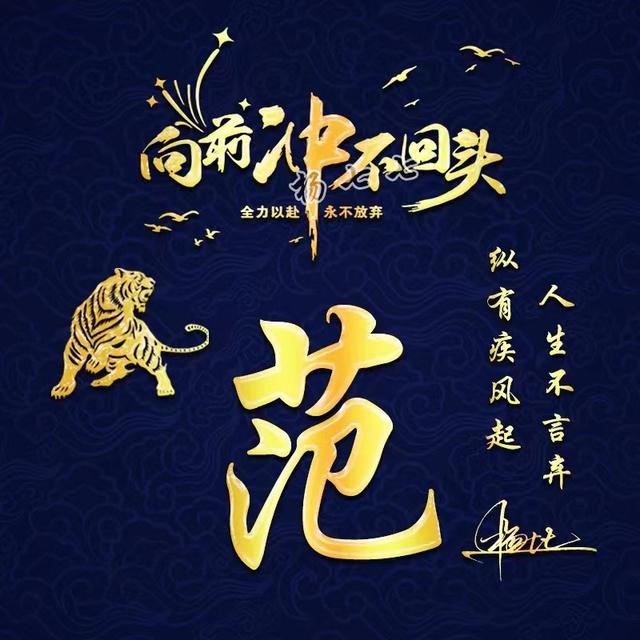 向前冲不回头
全力以赴 永不放弃
纵有疾风起
人生不言弃
范